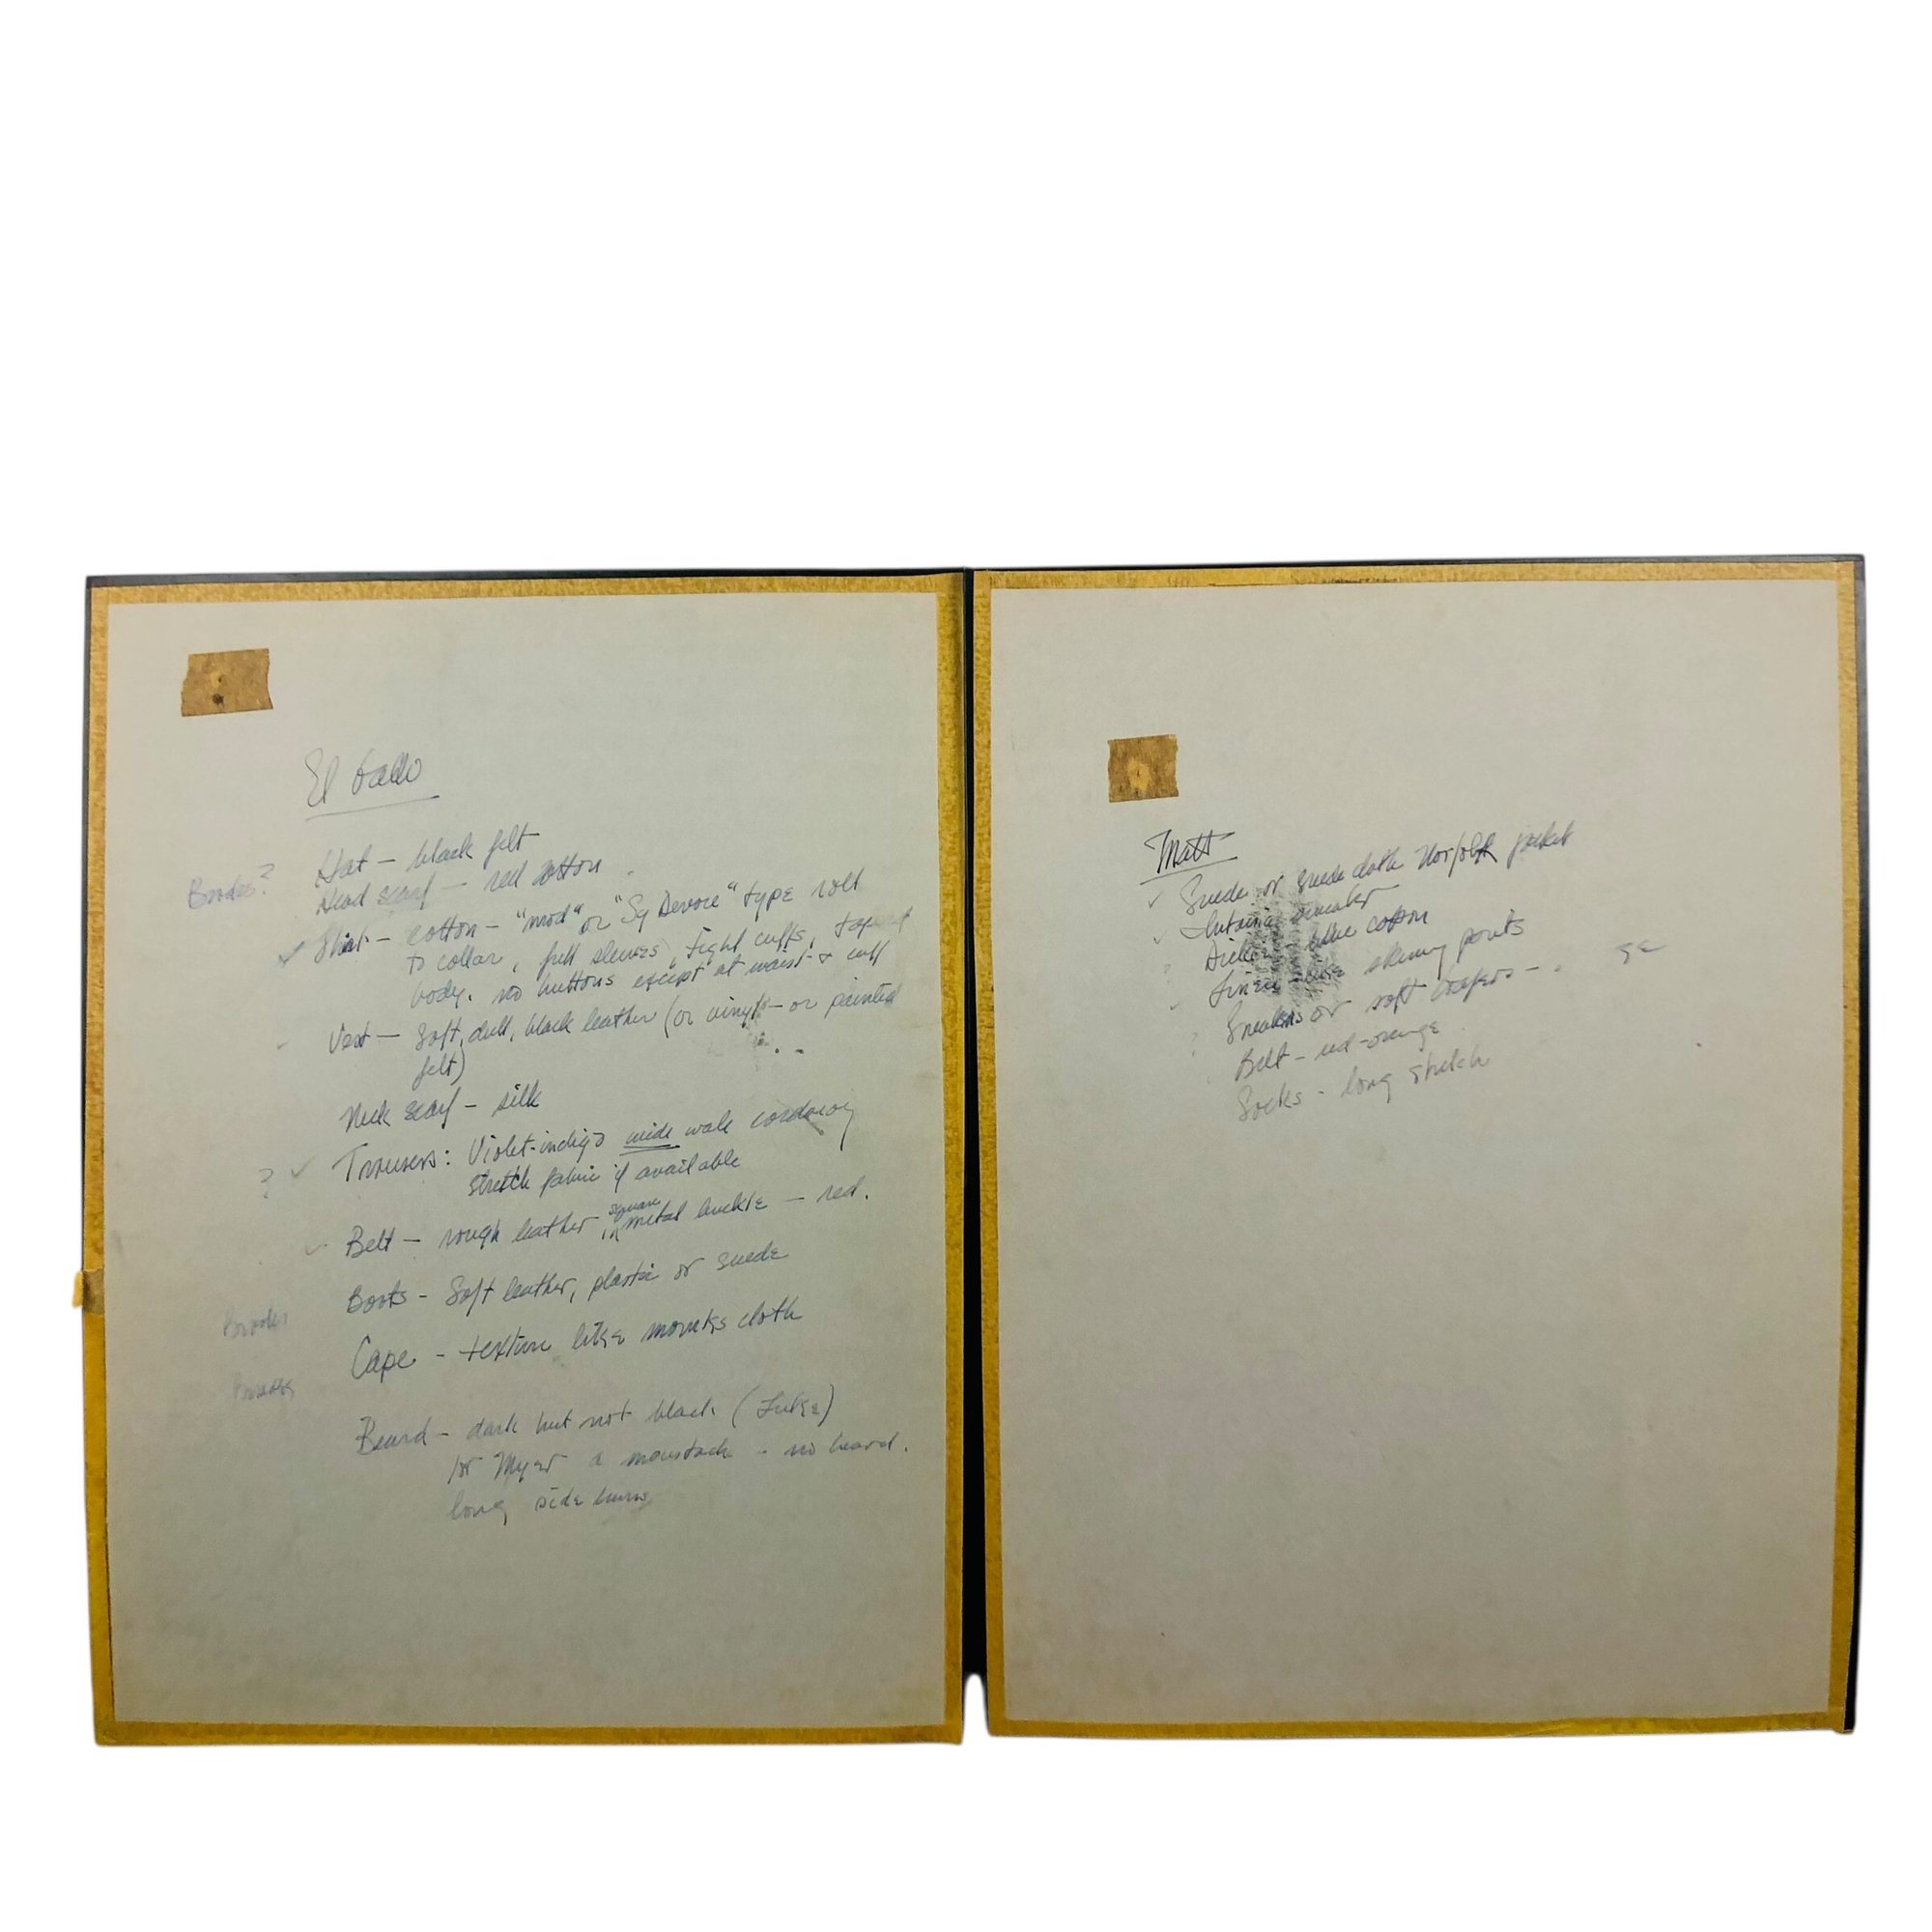 El Gallo
Hat — black felt
Brodes?
Head scarf — red cotton
Shirt — cotton — "mod" or "Sy Devore" type roll
to collar, full sleeves, tight cuffs,
body. no buttons except at waist & cuff
Vest — Soft, dull, black leather (or vinyl — or painted
felt)
Neck scarf — silk
? Trousers: Violet-indigo wide wale corduroy
stretch fabric if available
square
Belt — rough leather metal buckle — red.
Boots - Soft leather, plastic or suede
Cape - texture like monks cloth
Beard - dark but not black
for Myer a moustach - no beard.
long side burns
Matt
Suede or suede cloth Norfolk jacket
sweater
blue cotton
skinny pants
Sneakers or soft loafers -
? Belt - red-orange
Socks - long stretch